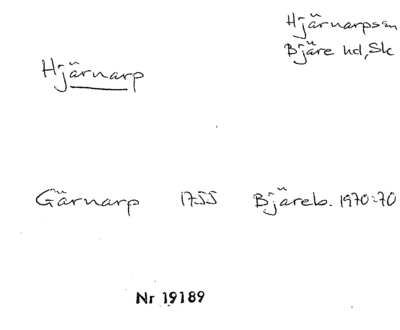 Hjärnarps sn
Bjäre hd, Sk
Hjärnarp
Gärnarp 1755 Bjäreb. 1970:70
Nr 19189